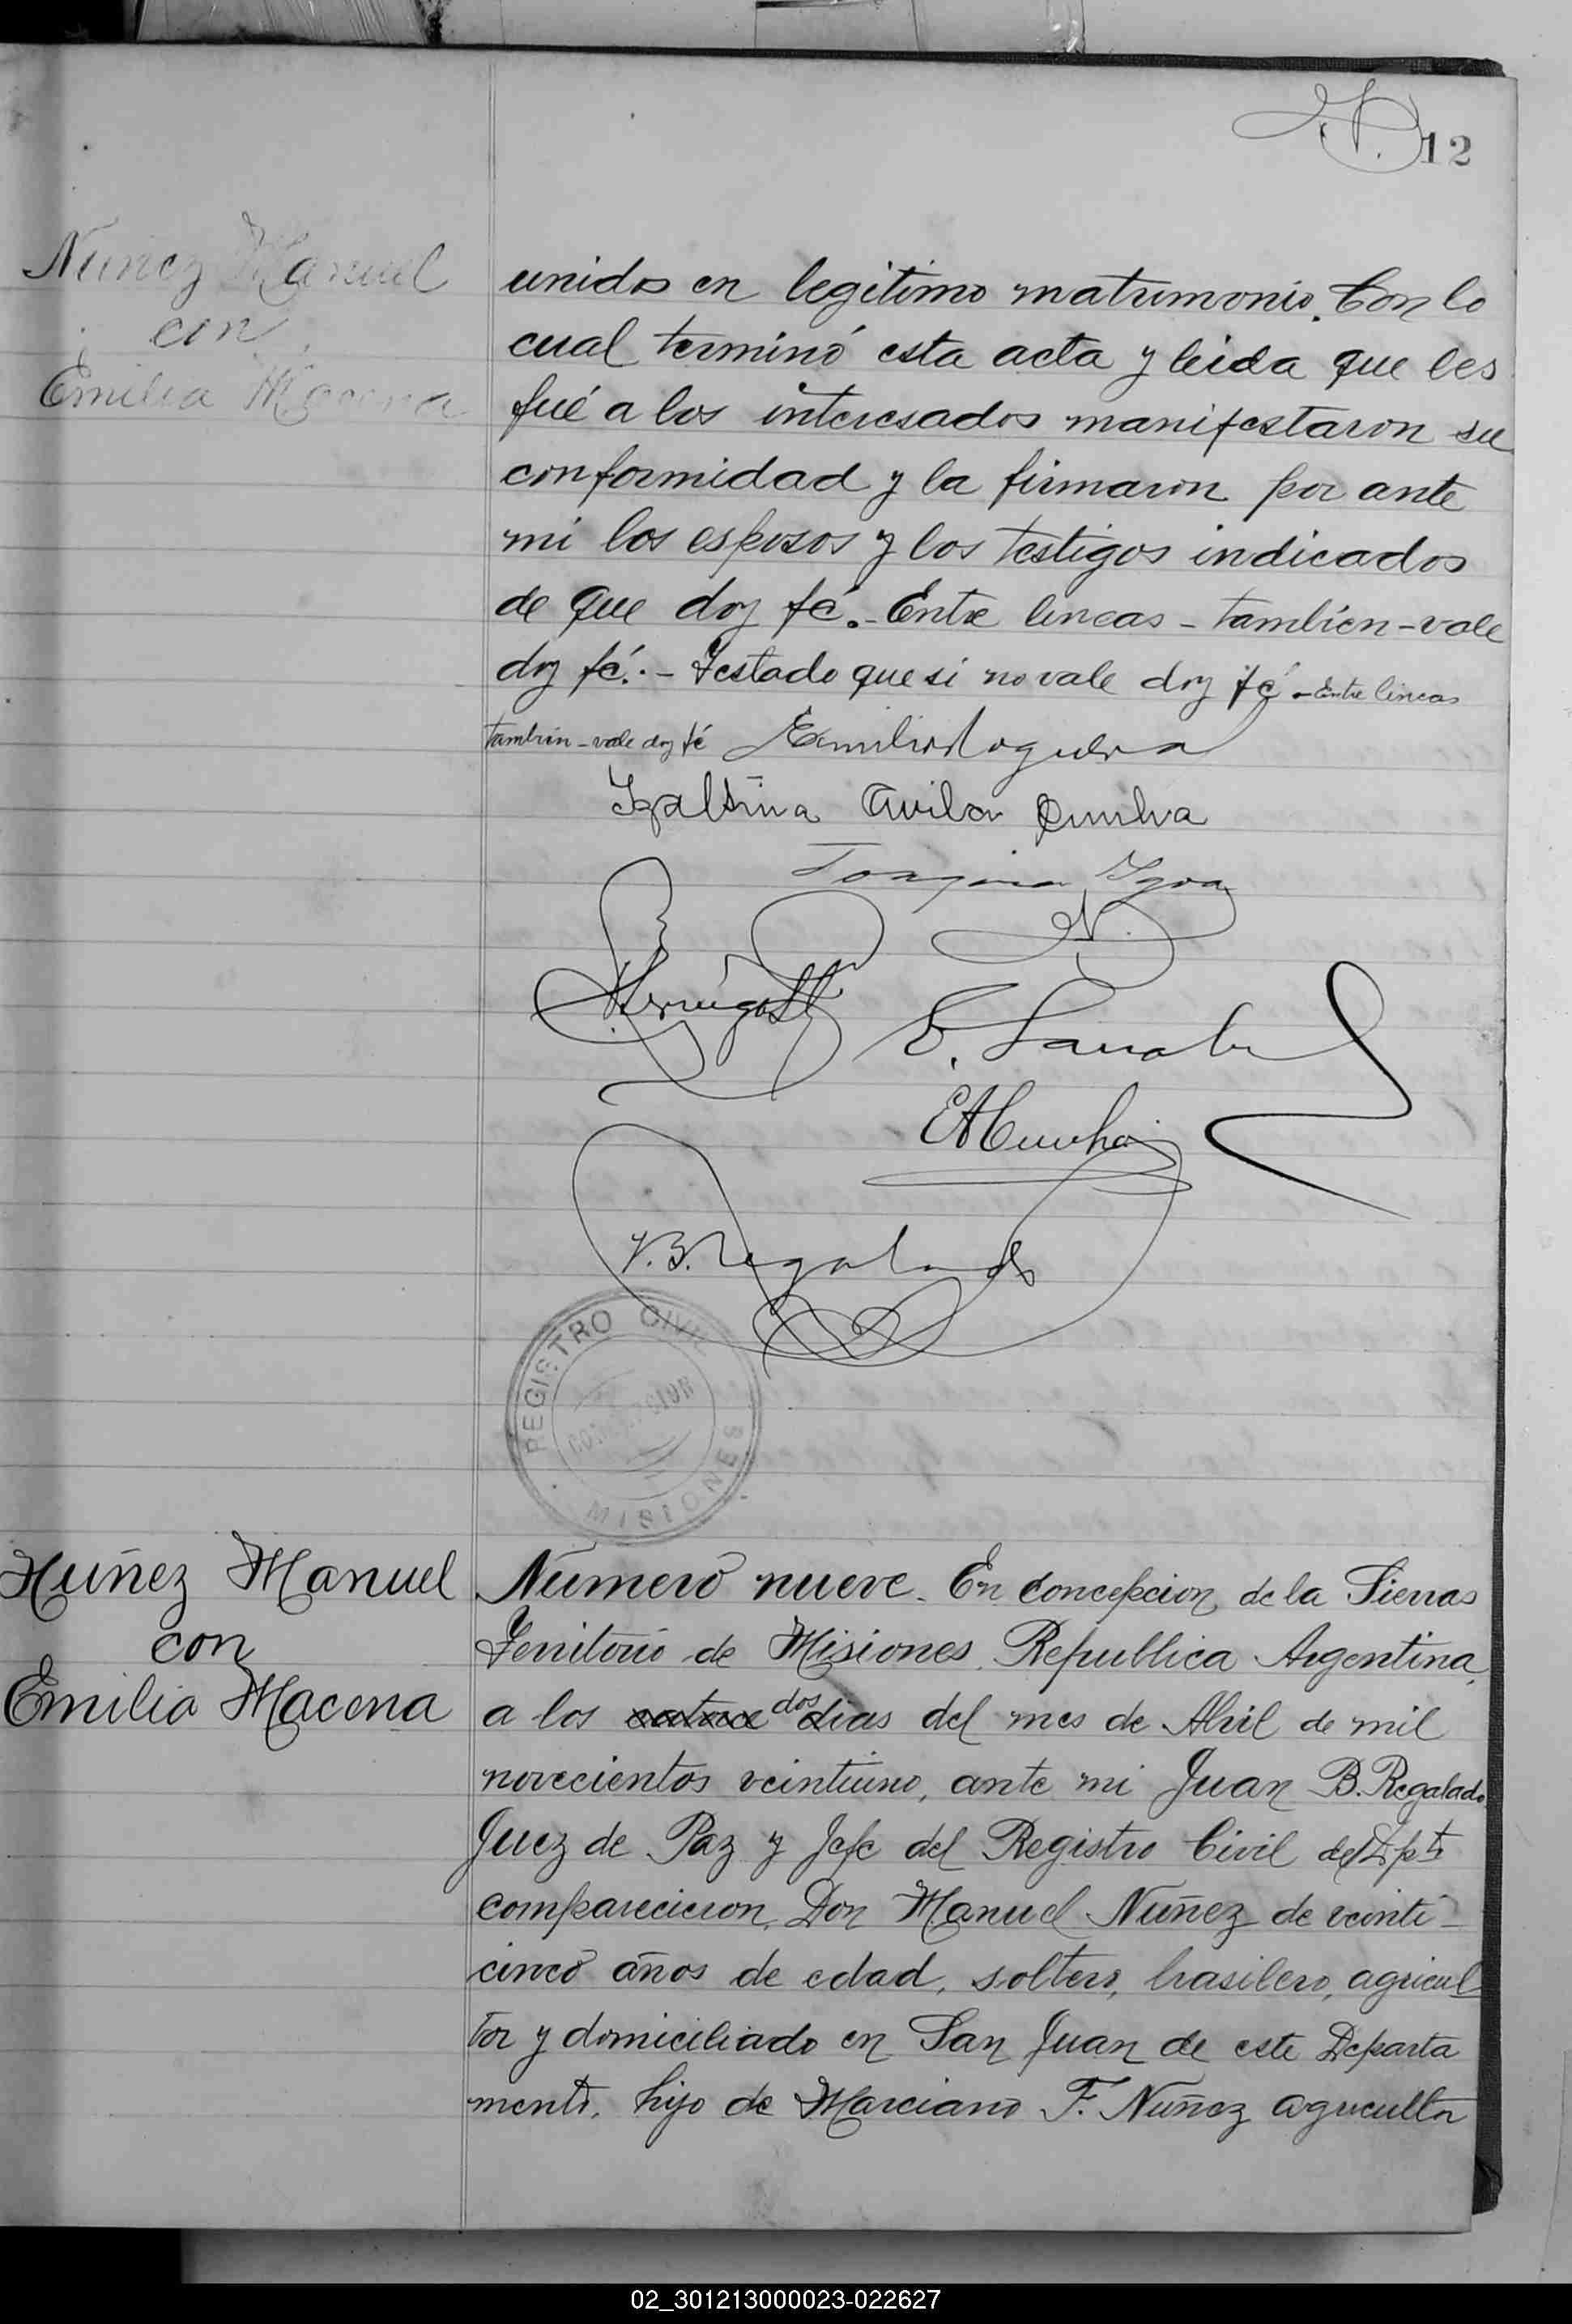 12
Nuñez Manuel
con
Emilia Macena
unidos en legitimo matrimonio. Con lo
cual terminó esta acta y leida que les
fué a los interesados manifestaron su
conformidad y la firmaron por ante
mi los esposos y los testigos indicados
de que doy fé.- Entre lineas - tambien - vale
doy fé.- Testado que si no vale doy fé - Entre lineas
tambien - vale doy fé Emilio Noguera
Avila
E.
J. B. Regalado
REGISTRO CIVIL
CONCEPCION
MISIONES
Nuñez Manuel
con
Emilia Macena
Número nueve. En Concepcion de la Sierra
Territorio de Misiones Republica Argentina,
a los catorce dos dias del mes de Abril de mil
novecientos veintiuno, ante mi Juan B. Regalado
Juez de Paz y Jefe del Registro Civil del Dpto
comparecieron, Don Manuel Nuñez de veinti-
cinco años de edad, soltero, brasilero, agricul
tor y domiciliado en San Juan de este Departa
mento, hijo de Marciano F. Nuñez agricultor
02_301213000023-022627